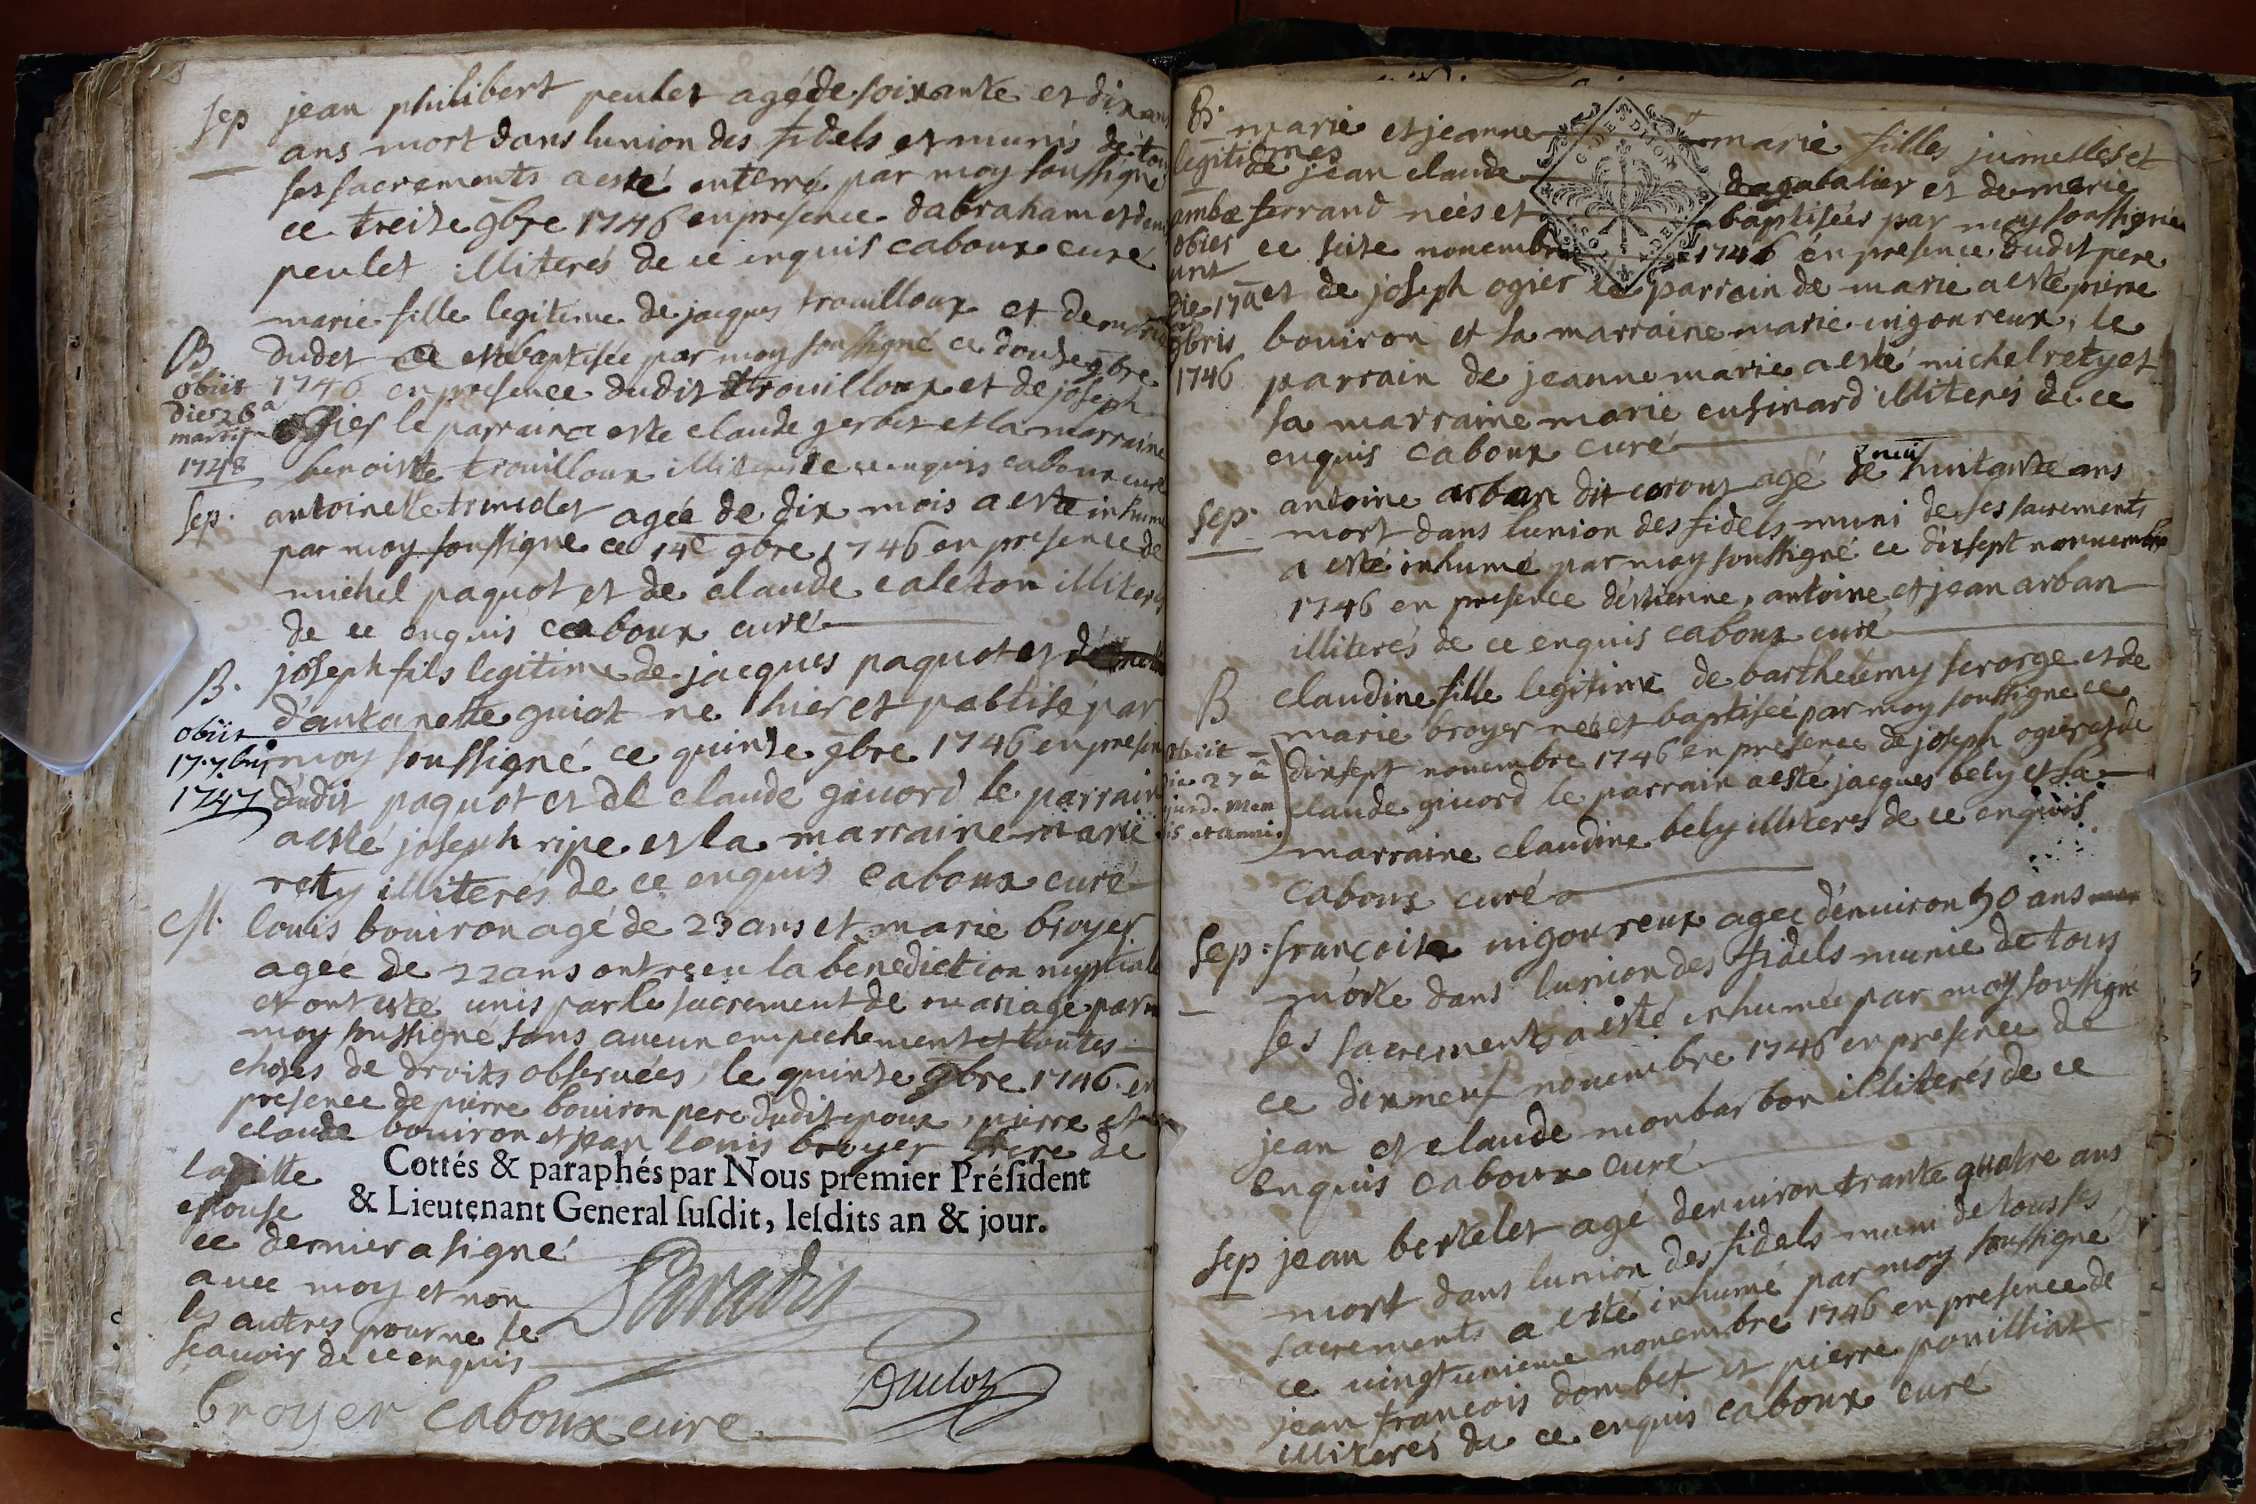 sep jean philibert peulet agé de soixante et dix
ans mort dans lunion des fidels et munis de
ses sacrements a esté enterré par moy soussigné
ce treize 9bre 1746 en presence dabraham et
peulet illiterés de ce enquis caboux curé
marie fille legitime de jacques trouilloux et de
B dudet et baptisée par moy soussigné ce douze 9bre
obiit 1746 en presence dudit trouilloux et de joseph
die 26a ogier le parrain a este claude gerbet et la marraine
martii
1748 benoiste trouilloux illiteres de ce enquis caboux curé
sep. antoinette agée de dix mois a esté inhumé
par moy soussigne ce 14e 9bre 1746 en presence de
michel paquot et de claude caleton illiterés
de ce enquis caboux curé
B. joseph fils legitime de jacques paquot et
d'antonette guiot ne hier et pabtisé par
obiit
17. 7bris moy soussigné ce quinze 9bre 1746 en presence
1747 dudit paquot et de claude giuord le parrain
a esté joseph ripe et la marraine marie
rety illiterés de ce enquis caboux curé
M. louis bouiron agé de 23 ans et marie broyer
agée de 22 ans ont reçeu la benediction nuptiale
et ont esté unis par le sacrement de mariage par
moy soussigné sans aucun empechement et toutes
choses de droits obseruées, le quinze 9bre 1746 en
presence de pierre bouiron pere dudit epoux, pierre et
claude bouiron et jean louis broyer frere de
laditte
epouse
Cottés & paraphés par Nous premier Président
& Lieutenant General susdit, lesdits an & jour.
ce dernier a signé
auec moy et non
les autres pour ne le
sçauoir de ce enquis
Paradis
Duclos
broyer caboux cure
B. marie et jeanne marie filles jumelles et
legitimes de jean claude et de marie
ambæ ferrand neés et baptisées par moy soussigné
obierunt ce seize nouembre 1746 en presence dudit pere
die 17a et de joseph ogier le parrain de marie a esté pierre
9bris bouiron et sa marraine marie uigoureux, le
1746 parrain de jeanne marie a esté michel rety et
sa marraine marie cusinard illiterés de ce
enquis caboux curé
sep. antoine arban dit agé de huitante ans
mort dans lunion des fidels muni de ses sacrements
a esté inhumé par moy soussigné ce dixsept nouuembre
1746 en presence d'estienne, antoine et jean arban
illiterés de ce enquis caboux curé
B claudine fille legitime de barthelemy ferorge et de
marie broyer neé et baptisée par moy soussigne ce
obiit
die 27a dixsept nouembre 1746 en presence de joseph ogier et de
claude giuord le parrain a esté jacques bely et sa
marraine claudine bely illiteres de ce enquis
caboux curé
sep. françoise uigoureux agée d'enuiron 50 ans
morte dans lunion des fidels munie de tous
ses sacrements a esté inhumée par moy soussigné
ce dixneuf nouembre 1746 en presence de
jean et claude monbarbon illiterés de ce
enquis caboux curé
sep jean bertelet agé denuiron trante quatre ans
mort dans lunion des fidels muni de tous ses
sacrements a esté inhumé par moy soussigné
ce uingtunieme nouembre 1746 en presence de
jean françois dombet et pierre pouilliat
illiterés de ce enquis caboux curé